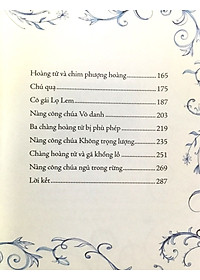 Hoàng tử và chim phượng hoàng 165
Chú quạ 175
Cô gái Lọ Lem 187
Nàng công chúa Vô danh 203
Ba chàng hoàng tử bị phù phép 219
Nàng công chúa Không trọng lượng 235
Chàng hoàng tử và gã khổng lồ 251
Nàng công chúa ngủ trong rừng 269
Lời kết 287